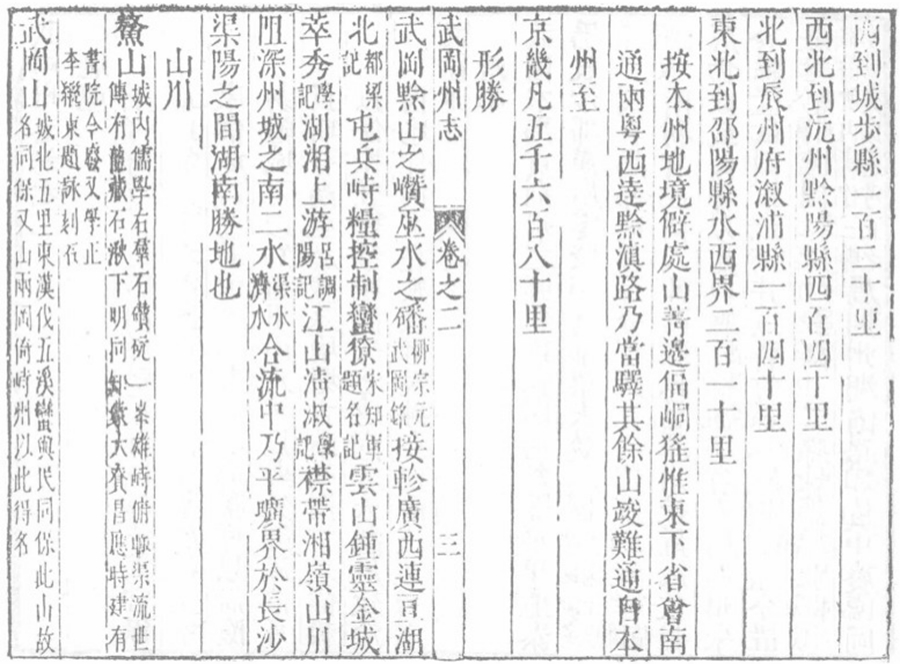 西到城步縣一百二十里
西北到沅州黔陽縣四百四十里
北到辰州府漵浦縣一百四十里
東北到邵陽縣水西界二百一十里
按本州地境僻處山菁邊偪峒猺惟東下省會南
通兩粵西達黔滇路乃當驛其餘山峻難通自本
州至
京畿凡五千六百八十里
形勝
武岡州志 卷之二 三
武岡黔山之巑巫水之磻柳宗元武岡銘接軫廣西連亘湖
北都梁記屯兵峙糧控制蠻獠宋知軍題名記雲山鍾靈金城
萃秀學記湖湘上游呂調陽記江山淸淑學記襟帶湘嶺山川
阻深州城之南二水渠水濟水合流中乃平曠界於長沙
渠陽之間湖南勝地也
山川
鰲山城内儒學右羣石巑岏一峯雄峙俯瞰渠流世
傳有龍藏石湫下明同知大賚昌應時建有
書院今廢又學正
李獵東題詠刻石
武岡山城北五里東漢伐五溪蠻與民同保此山故
名同保又山兩岡倚峙州以此得名